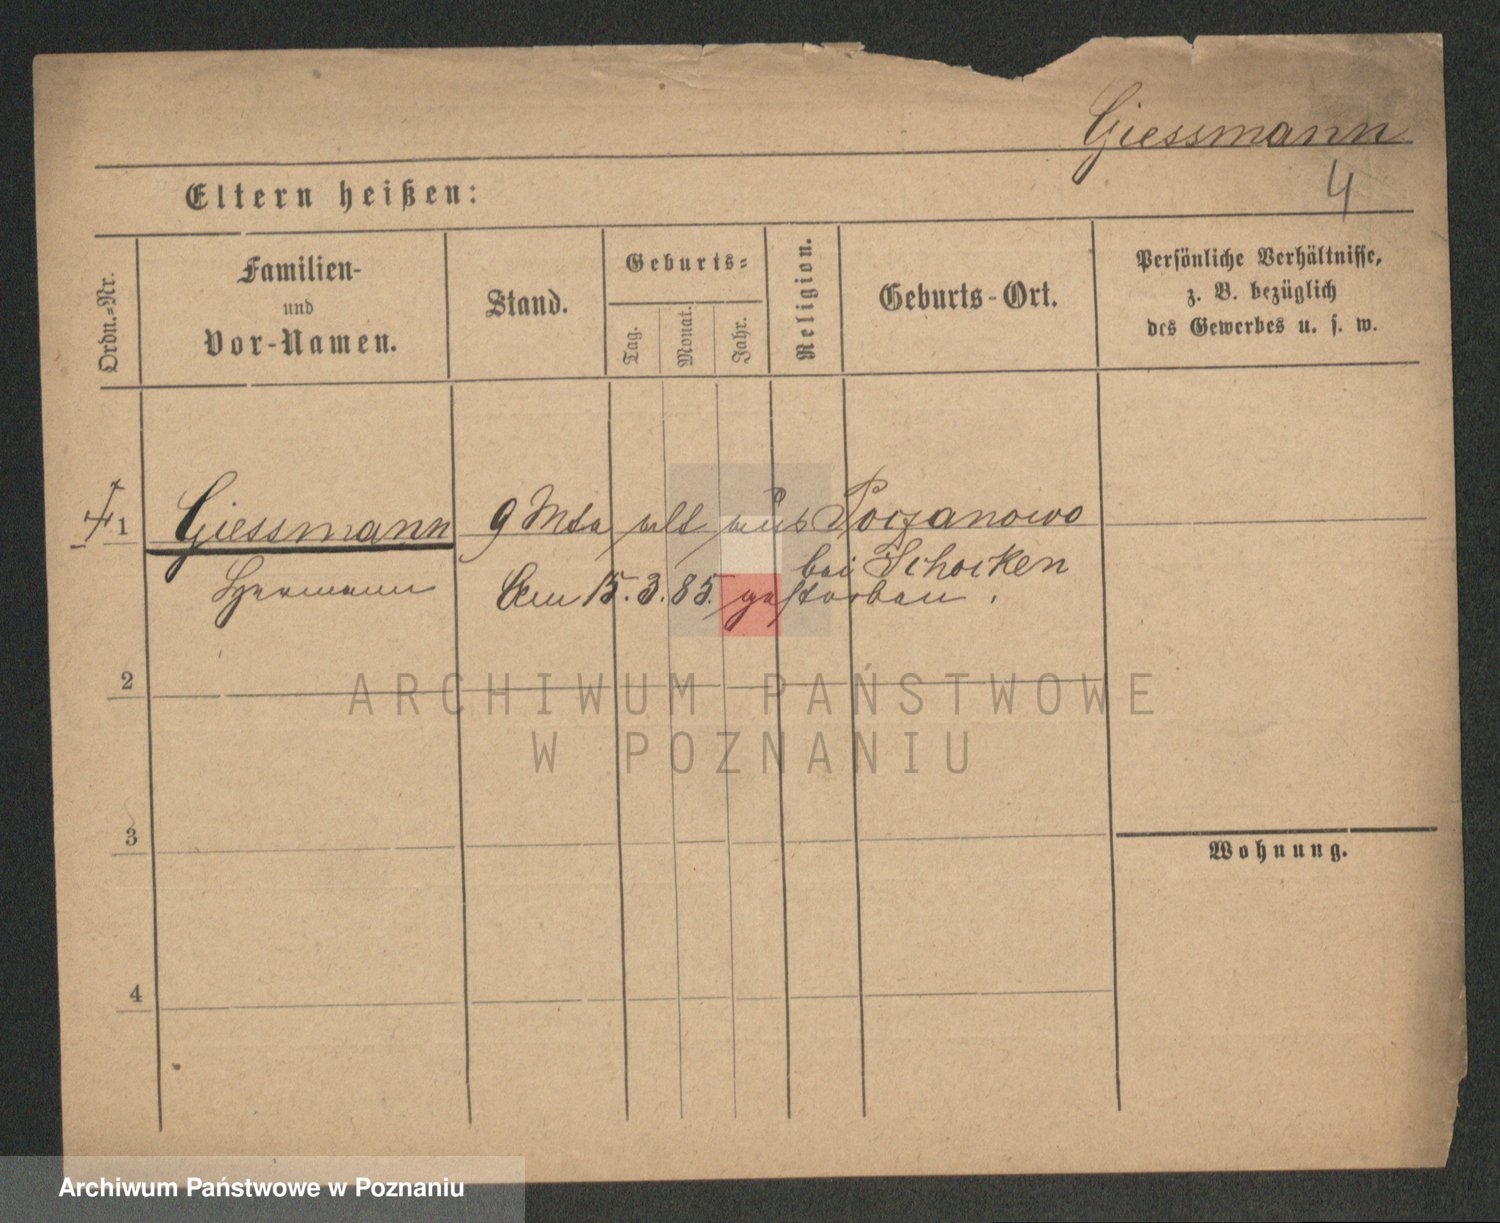 Giessmann
4
Eltern heißen:
Ordn.-Nr.
Familien-
und
Vor-Namen.
Stand.
Geburts-
Tag.
Monat.
Jahr.
Religion.
Geburts-Ort.
Persönliche Verhältnisse,
z. B. bezüglich
des Gewerbes u. s. w.
1 Giessmann 9 Mte alt aus
Hermann
bei Schocken
Am 15.3.85. gestorben.
2
ARCHIWUM PAŃSTWOWE
W POZNANIU
3
Wohnung.
4
Archiwum Państwowe w Poznaniu